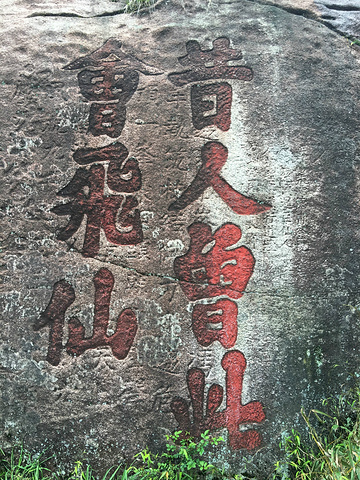 昔人曾此
會飛仙